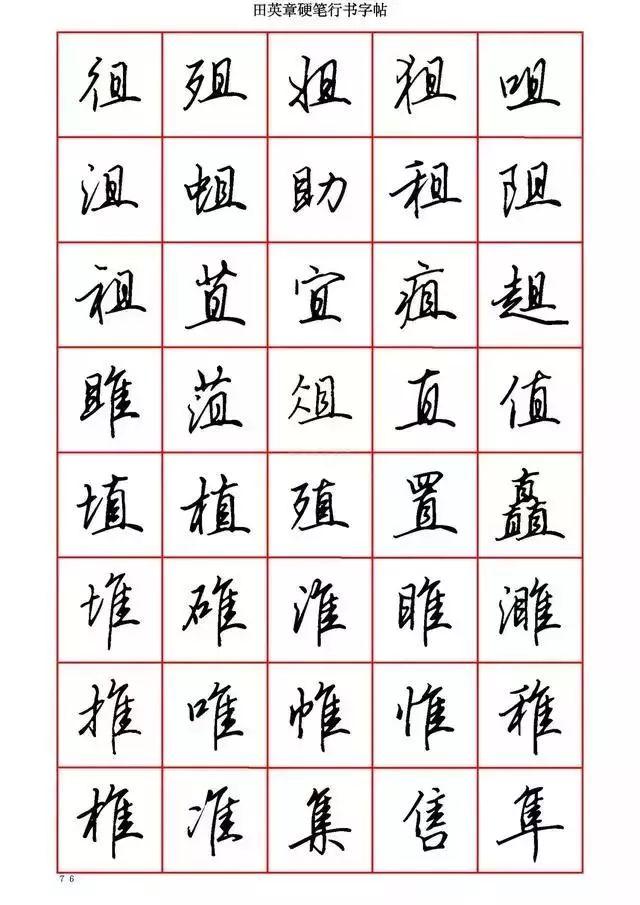 田英章硬笔行书字帖
徂 殂 姐 狙 咀
沮 蛆 助 租 阻
祖 苴 宜 疽 趄
雎 菹 俎 直 值
埴 植 殖 置 矗
堆 碓 淮 睢 濉
推 唯 帷 惟 稚
椎 准 集 售 隼
76